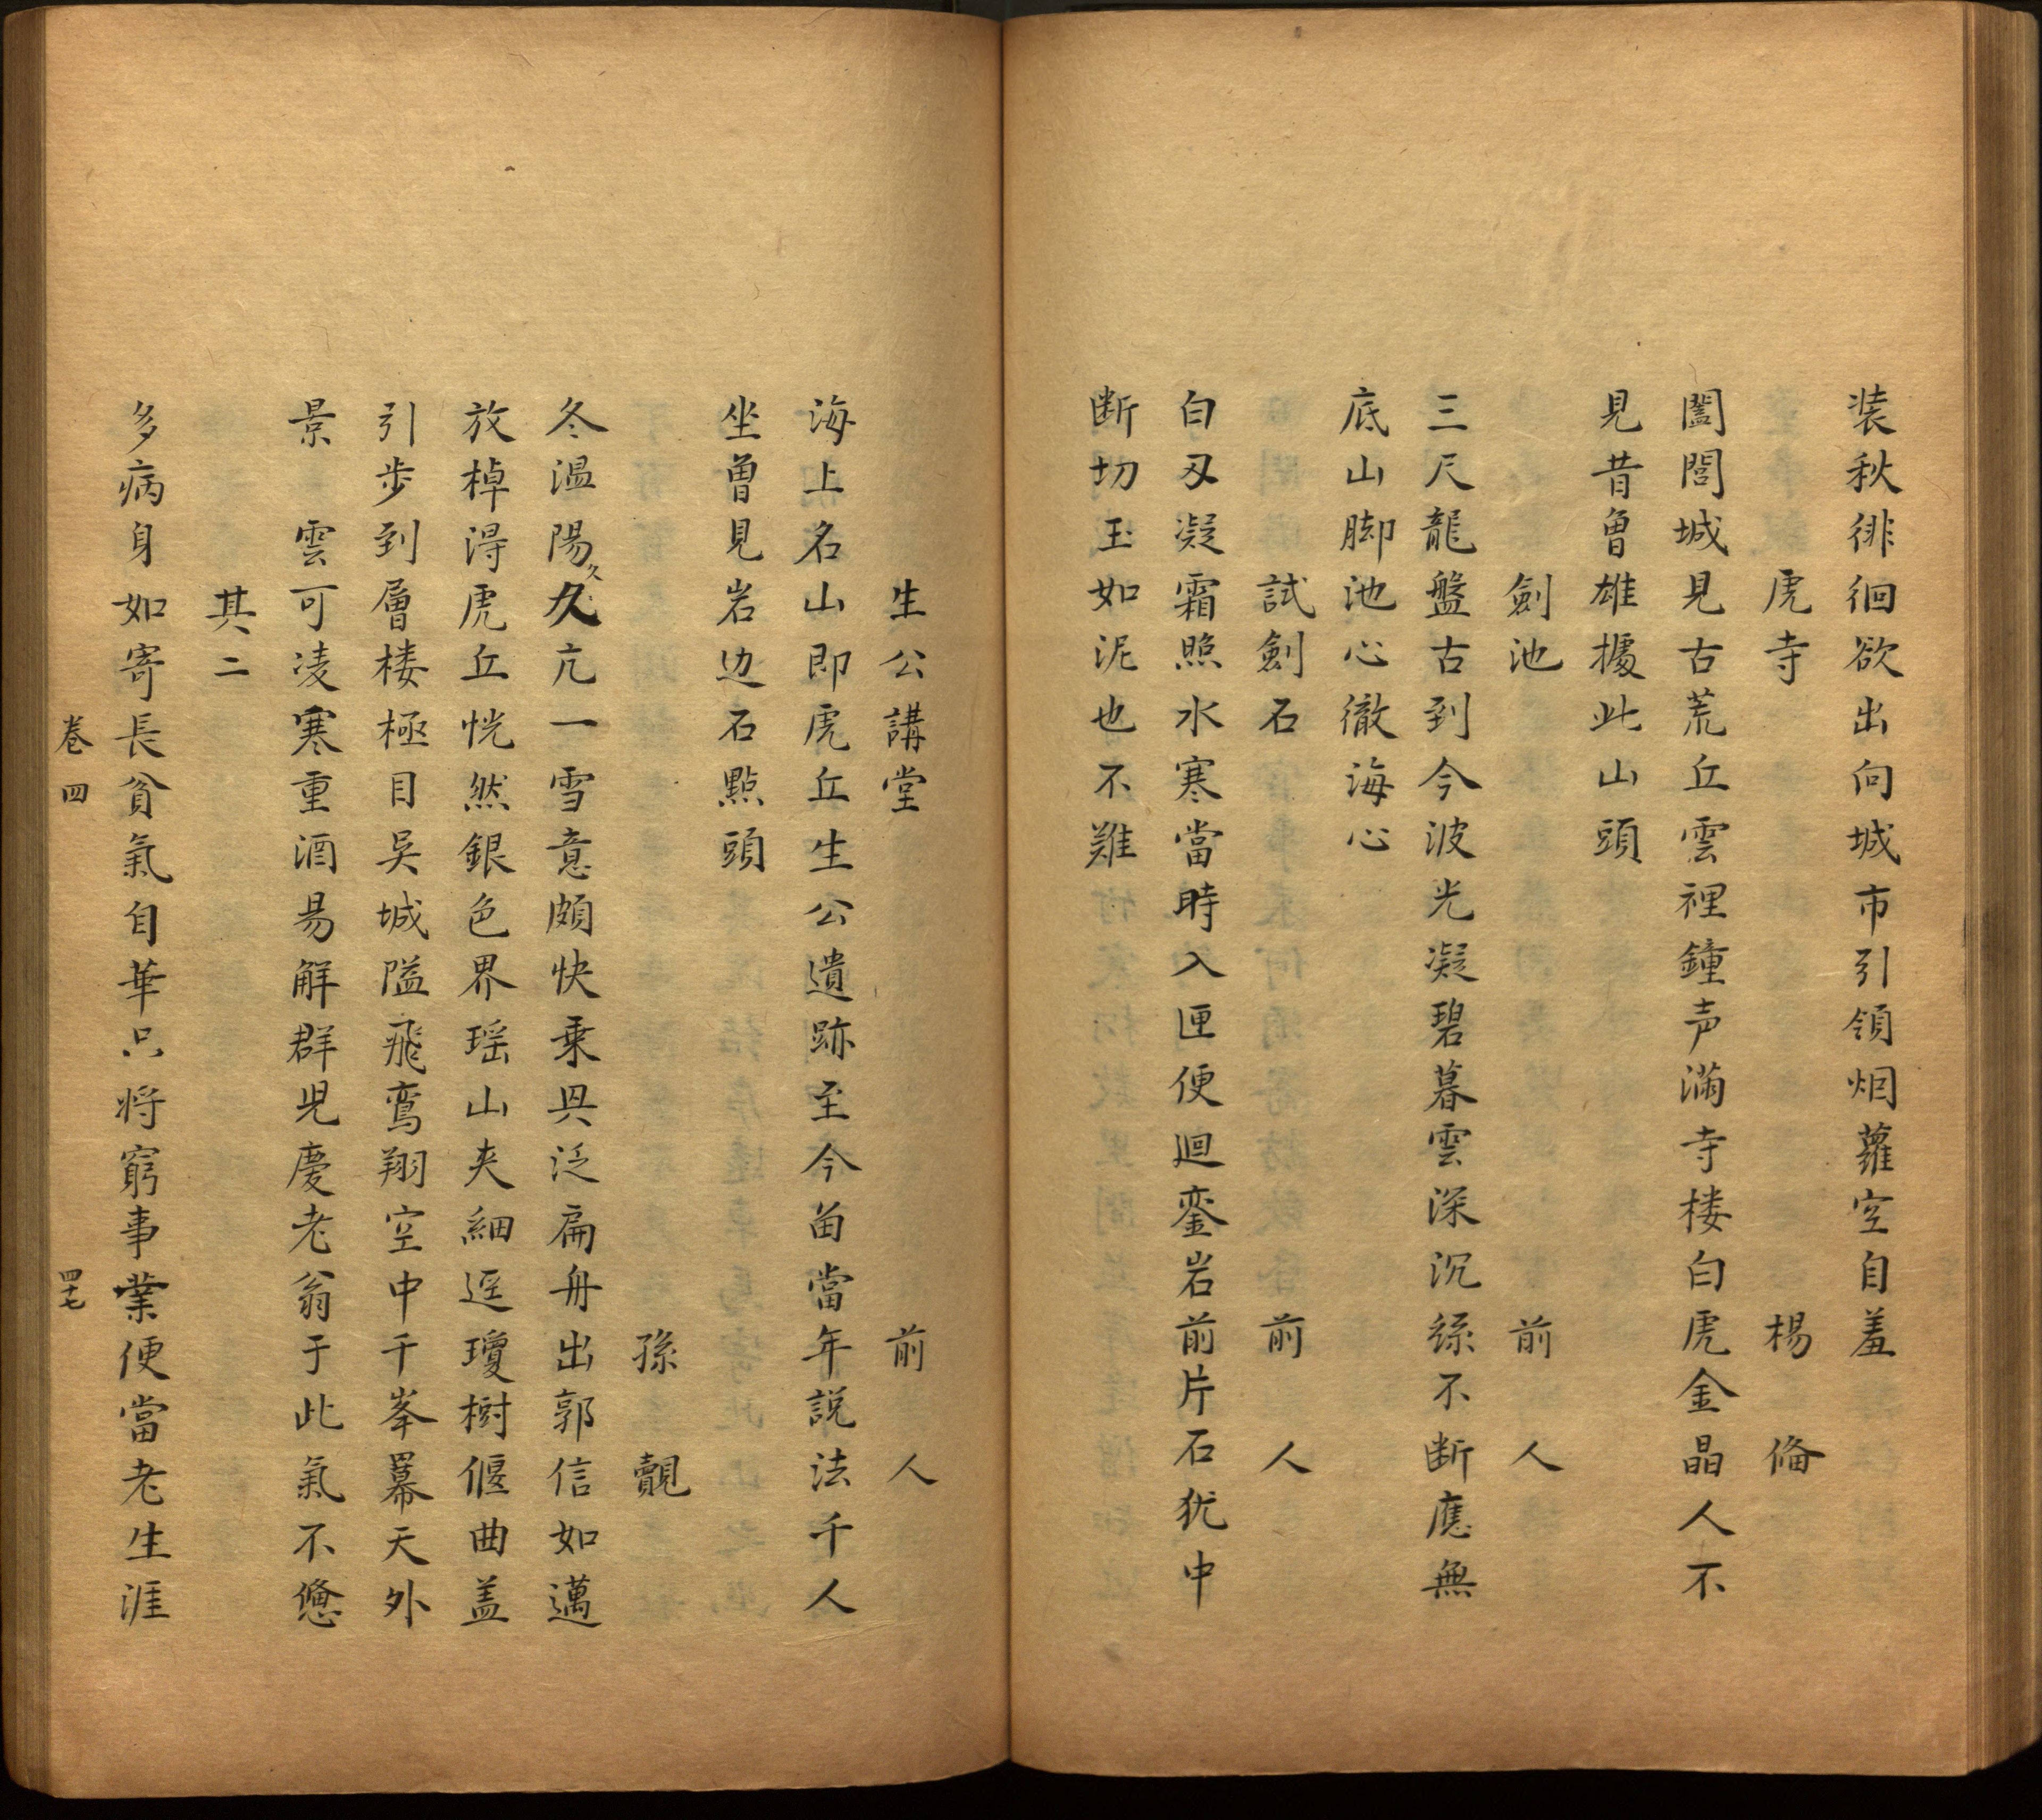 装秋徘徊欲出向城市引領烟蘿空自羞
虎寺　楊偹
闔閭城見古荒丘雲裡鐘声滿寺楼白虎金晶人不
見昔曾雄據此山頭
劍池　前人
三尺龍盤古到今波光凝碧暮雲深沉絲不断應無
底山脚池心徹海心
試劍石　前人
白刄凝霜照水寒當時入匣便迴鑾岩前片石犹中
断切玉如泥也不難
生公講堂　前人
海上名山即虎丘生公遺跡至今留當年説法千人
坐曾見岩边石點頭
孫覿
冬温陽久亢一雪意頗快乗興泛扁舟出郭信如邁
放棹淂虎丘恍然銀色界瑶山夾細逕瓊樹偃曲盖
引步到層楼極目吴城隘飛鸞翔空中千峯羃天外
景　雲可凌寒重酒易解群児慶老翁于此氣不憊
其二
多病身如寄長貧氣自華只将窮事業便當老生涯
卷四　四十七